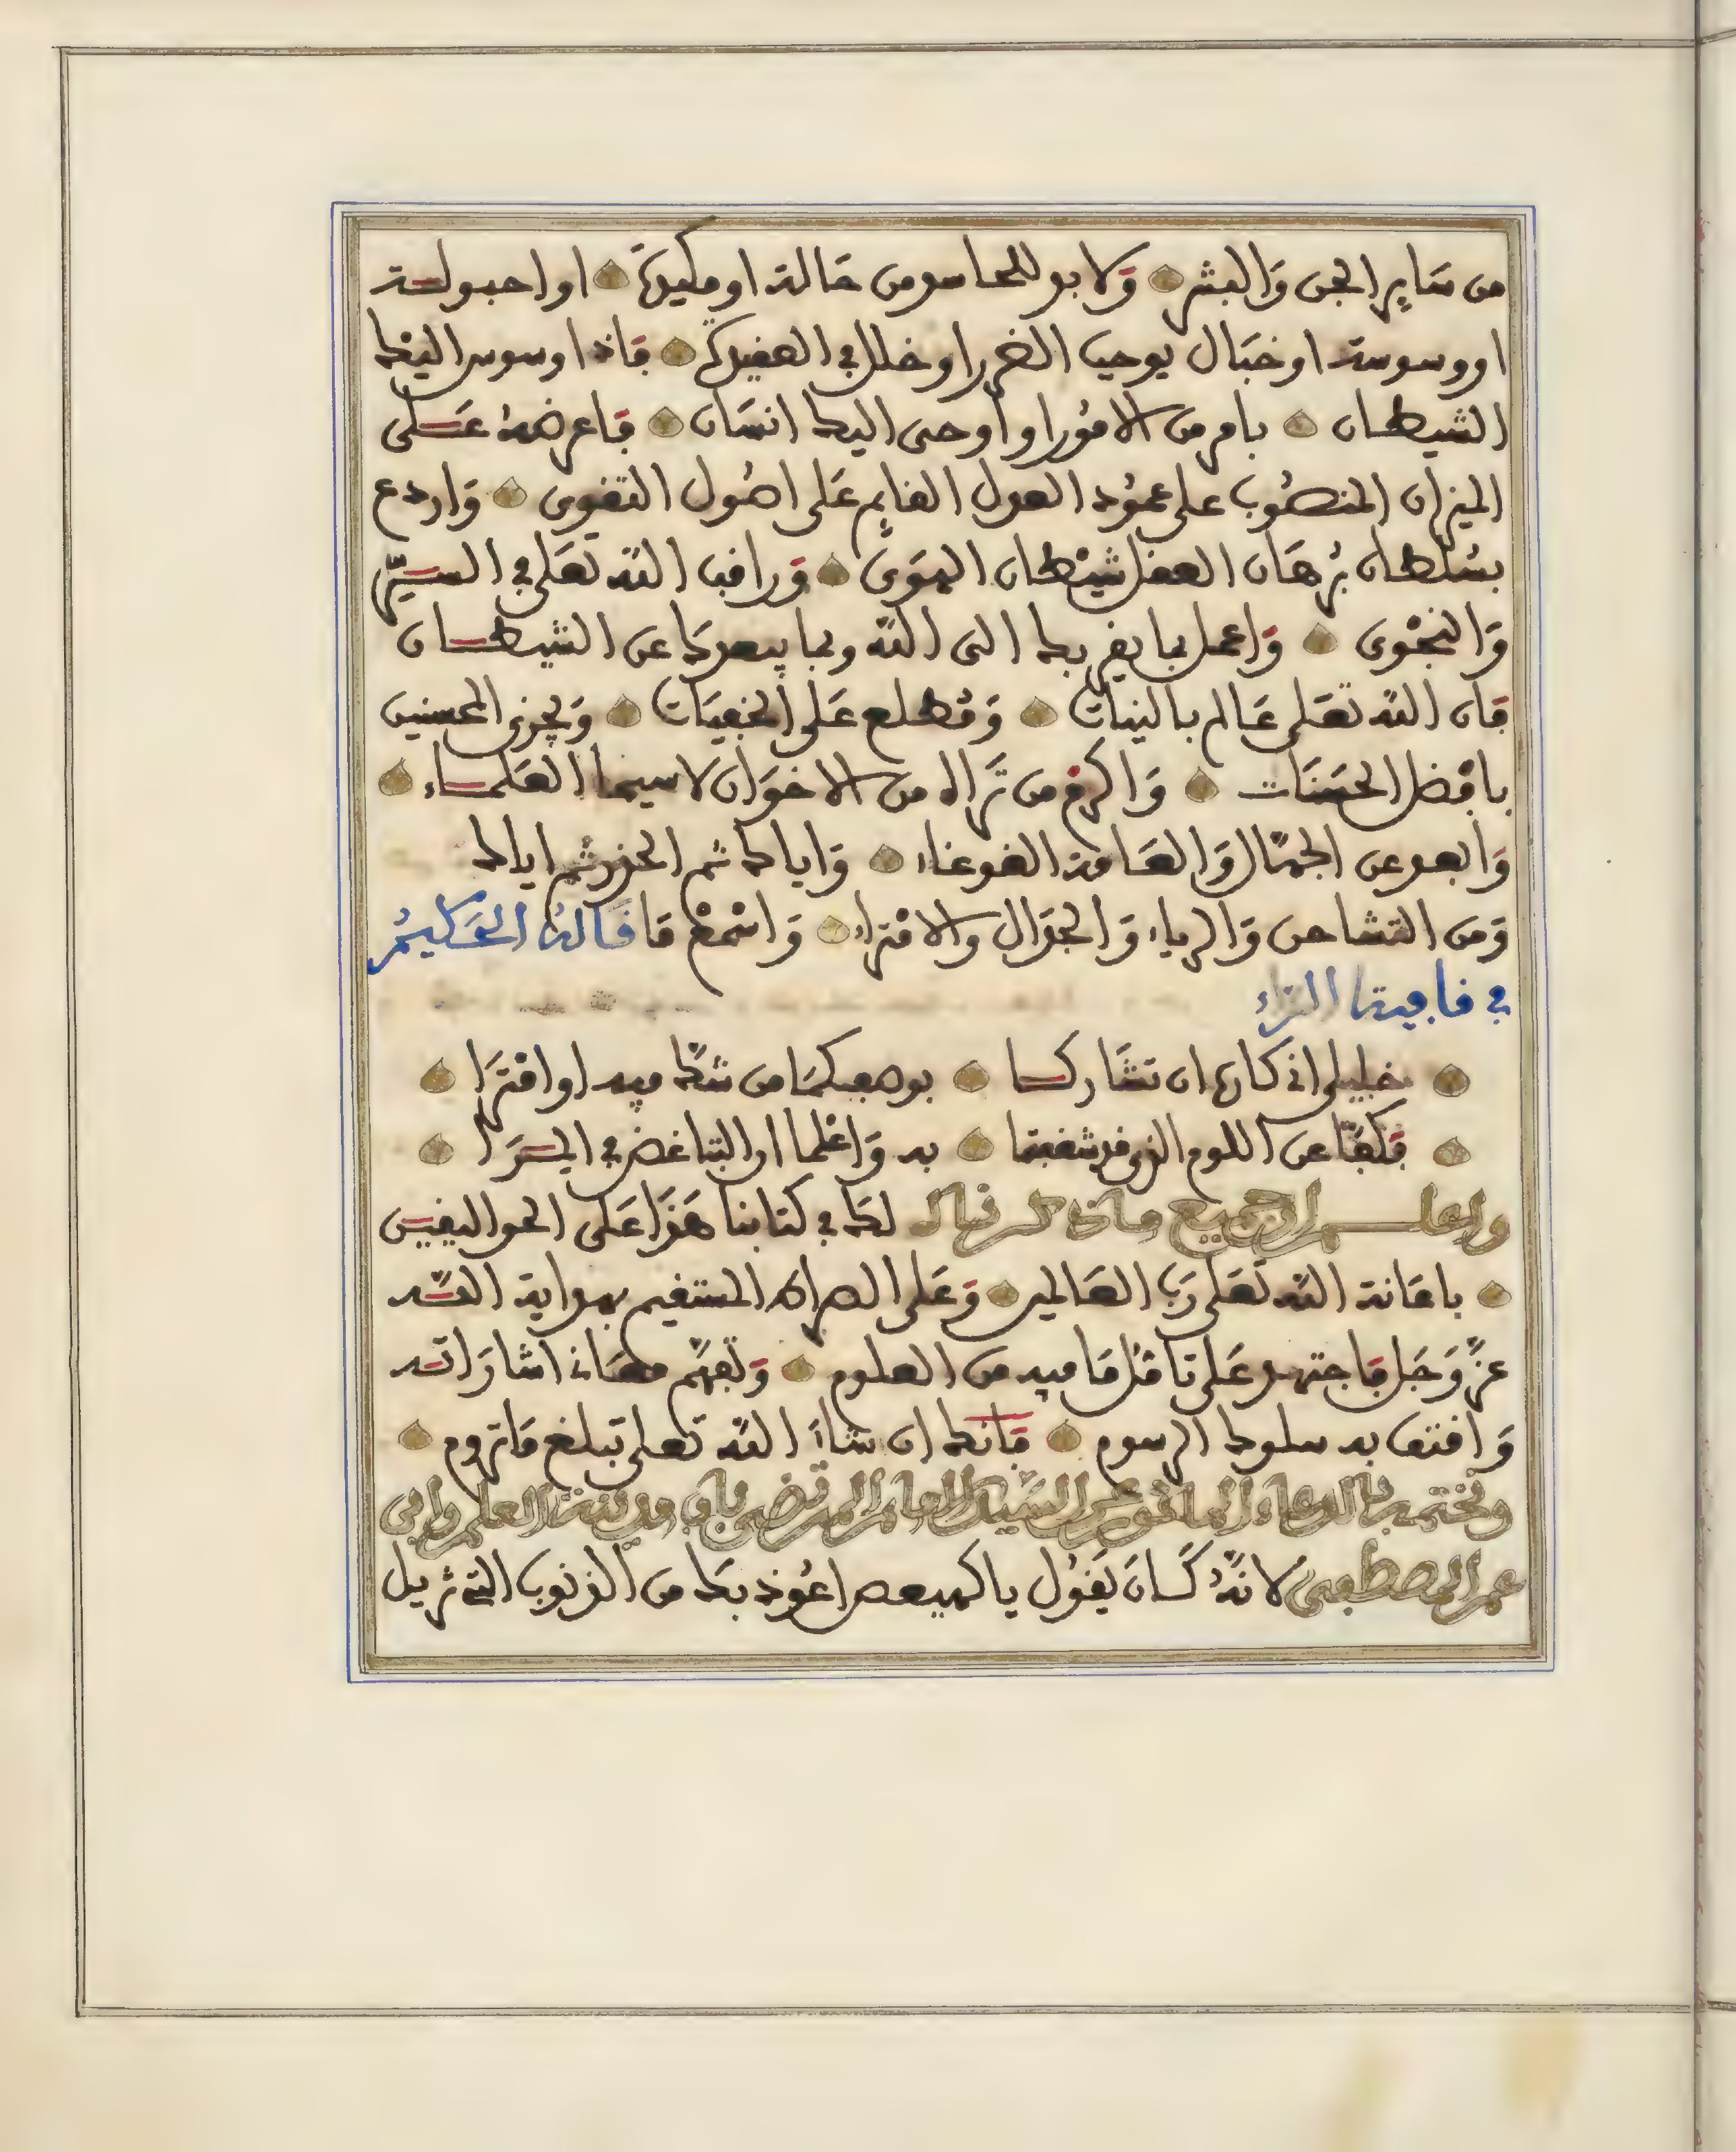 من سَاير الجن وَالبشر وَلا بد للحاسد من حَالة او مكيدَة او احبولـة
او وسوسة او خبَال يوجب الضرر او خلل في العقيدَة فاذا وسوس اليْك
الشيطان بامر من الامُور او أوحى اليك انسَان فاعرضهُ عَلى
الميزان المنصُوب على عمُود العدل القايم عَلى اصُول التقوى وَاردع
بسُلطان بُرهَان العقل شيْطان الهوَى وَراقب اللّه تعَلى في السـرّ
وَالنجْوى وَاعمل بما يقربك الى اللّه وبما يبعدكَ عن الشيطـان
فان اللّه تعَلى عَالم بالنيات وَمُطلع عَلى الخفيَات وَيجزي المحسنين
بافضل الحسَنات وَاكرمْ من تَراه من الاخوَان لاسيما العلمـاء
وَابعد عن الجهّال وَالعَامة الغوغاء وَاياك ثم الحذر ثم اياك
وَمن التشاحن وَالرياء وَالجدَال والافتراء وَاسْمعْ مَا قَالهُ الحَكيمُ
في قافية الرّاء
خليلي اذ كان ان تشَاركـا بوصفكمَا من شكّ فيه او افترَا
فكفّا عن اللوم الذي قد شغفتما به وَاعْلما ان التباغض في المـرَا
واعلـم ان جميع ما ذكرناه لكَ في كتابنا هَذَا عَلى الحق اليقيـن
باعَانة اللّه تعَلى رَب العَالمين وَعَلى الصراط المستقيم بهداية اللّـه
عزّ وَجَل فاجتهد عَلى تامُل مَا فيه من العلوم وَتفهّم معَانِ اشارَاتـه
وَاقتف به سلوك الرسوم فانك ان شاءَ اللّه تعلى تبلغ مَا تروم
ونختمه بالدعاء الماثور عن السّيد الامام المرتضى باب مدينة العلم وابن
عم المصطفى لانّهُ كَان يَقُول يا كهيعص اعُوذ بكَ من الذنوب التي تزيل